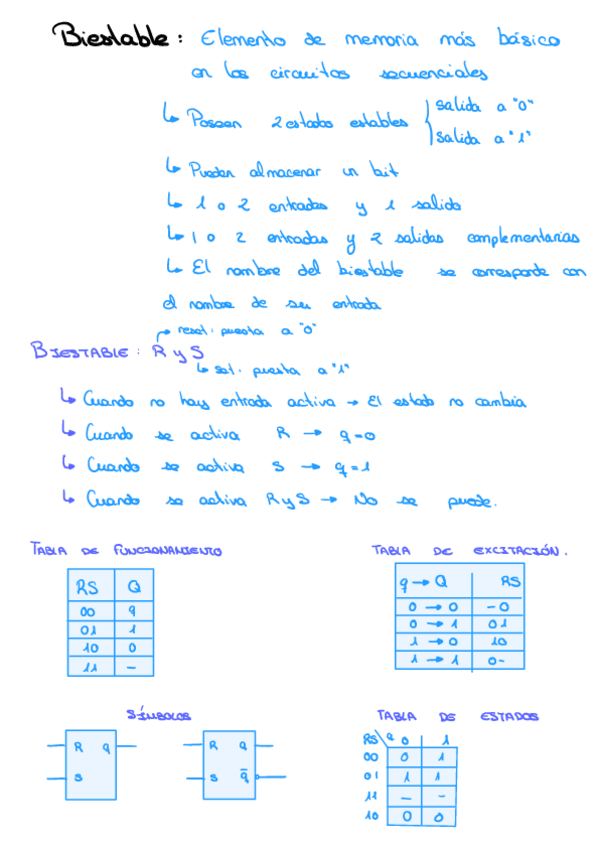 Biestable: Elemento de memoria más básico
en los circuitos secuenciales
↳ Poseen 2 estados estables
salida a "0"
salida a "1"
↳ Pueden almacenar un bit
↳ 1 o 2 entradas y 1 salida
↳ 1 o 2 entradas y 2 salidas complementarias
↳ El nombre del biestable se corresponde con
el nombre de su entrada
reset: puesta a "0"
BIESTABLE: R y S
↳ set: puesta a "1"
↳ Cuando no hay entrada activa → El estado no cambia
↳ Cuando se activa R → q=0
↳ Cuando se activa S → q=1
↳ Cuando se activa R y S → No se puede.
TABLA DE FUNCIONAMIENTO
RS Q
00 q
01 1
10 0
11 -
TABLA DE EXCITACIÓN.
q → Q RS
0 → 0 -0
0 → 1 01
1 → 0 10
1 → 1 0-
SÍMBOLOS
R q
S
R q
S q̅
TABLA DE ESTADOS
RS\q 0 1
00 0 1
01 1 1
11 - -
10 0 0